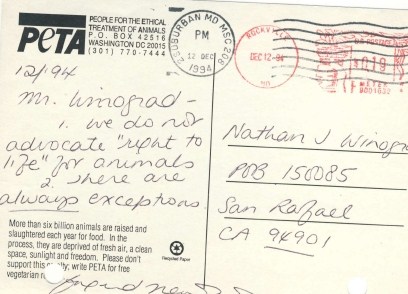 PETA
PEOPLE FOR THE ETHICAL
TREATMENT OF ANIMALS
P.O. BOX 42516
WASHINGTON DC 20015
(301) 770-7444
SUBURBAN MD MSC 208
PM
12 DEC
1994
ROCKVILLE
DEC 12 '94
MD
019
METER
12/94
Mr. Winograd -
1. We do not
advocate "right to
life" for animals
2. There are
always exceptions
Nathan J Winograd
POB 150085
San Rafael
CA 94901
More than six billion animals are raised and
slaughtered each year for food. In the
process, they are deprived of fresh air, a clean
space, sunlight and freedom. Please don't
support this cruelty; write PETA for free
vegetarian
Recycled Paper